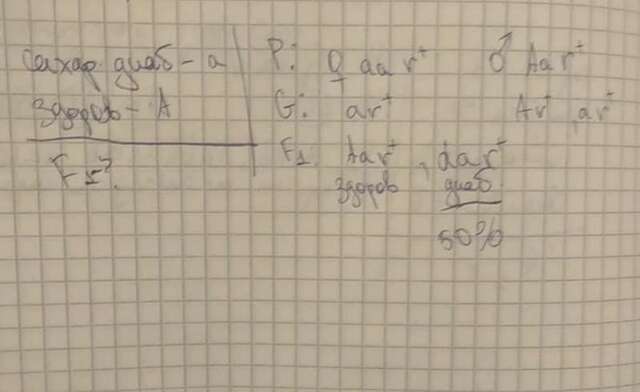 сахар диаб - а
здоров - А
F₁?
P: ♀ аа r⁺ ♂ Аа r⁺
G: аr⁺ Аr⁺, аr⁺
F₁ Ааr⁺, ааr⁺
здоров диаб
50%